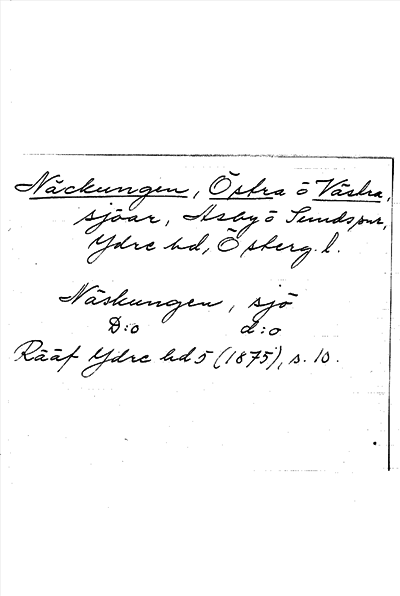 Näckungen, Östra o Västra,
sjöar, Asby o Sunds snr,
Ydre hd, Österg. l.
Näskungen, sjö
D:o d:o
Rääf Ydre hd 5 (1875), s. 10.